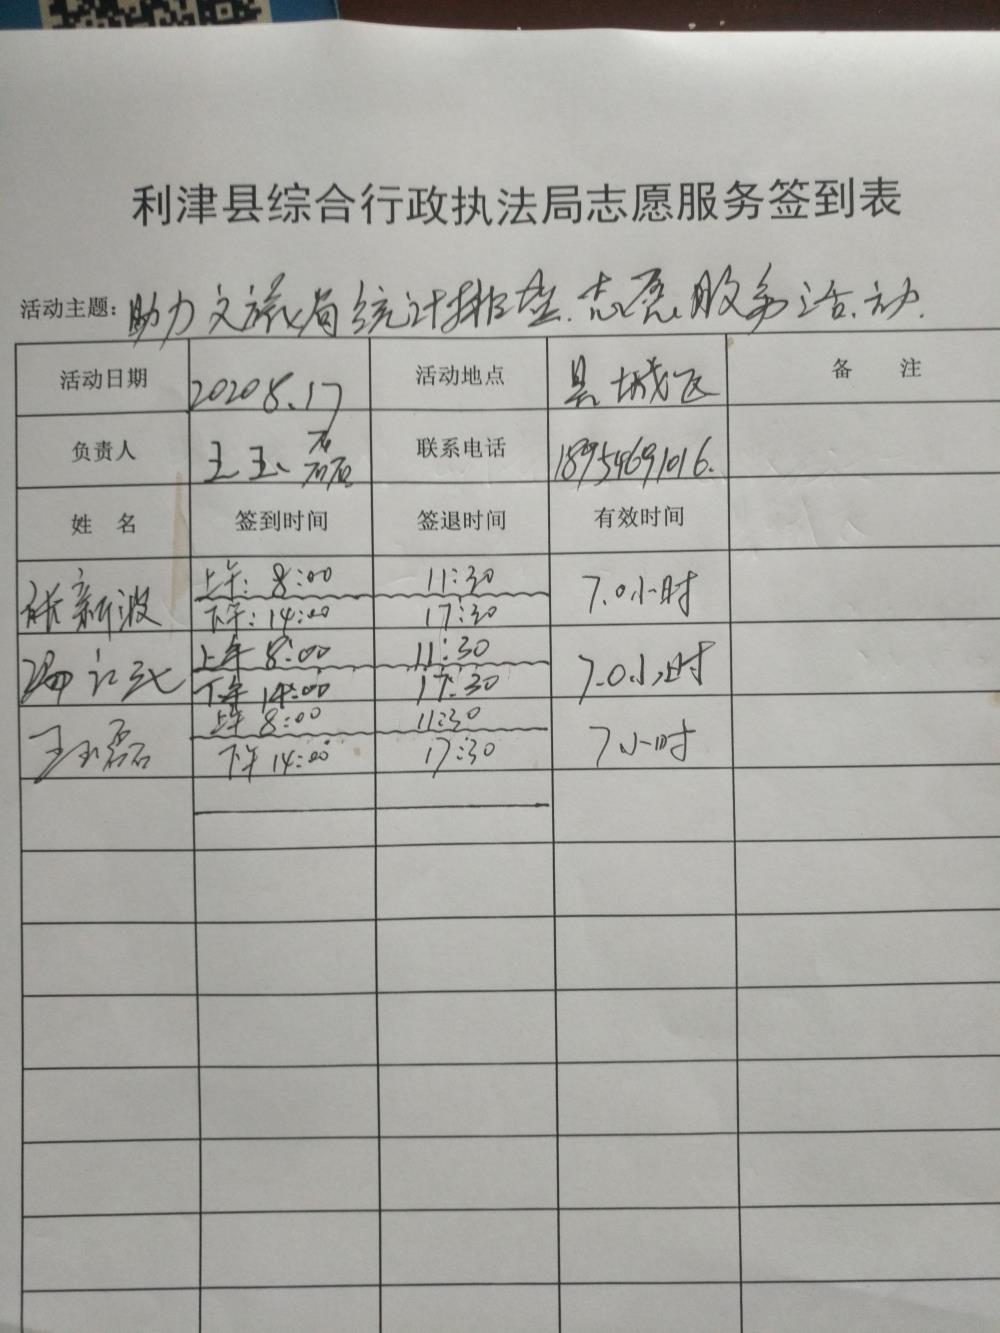 利津县综合行政执法局志愿服务签到表
活动主题: 助力文旅局统计排查志愿服务活动.
活动日期 2020 8.17 活动地点 县城区 备 注
负责人 王玉磊 联系电话 18954691016.
姓 名 签到时间 签退时间 有效时间
张新波 上午: 8:00 11:30 7.0小时
下午: 14:00 17:30
上午 8:00 11:30 7.0小时
下午 14:00 17:30
王玉磊 上午 8:00 11:30 7小时
下午 14:00 17:30